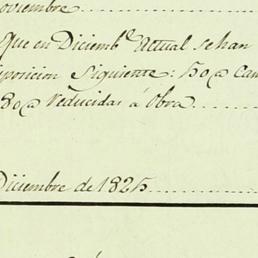 oviembre
Que en Diciembᵉ Actual se han
posicion Siguiente: 50@ Can
80@ Reducidas à Obra
Diciembre de 1825